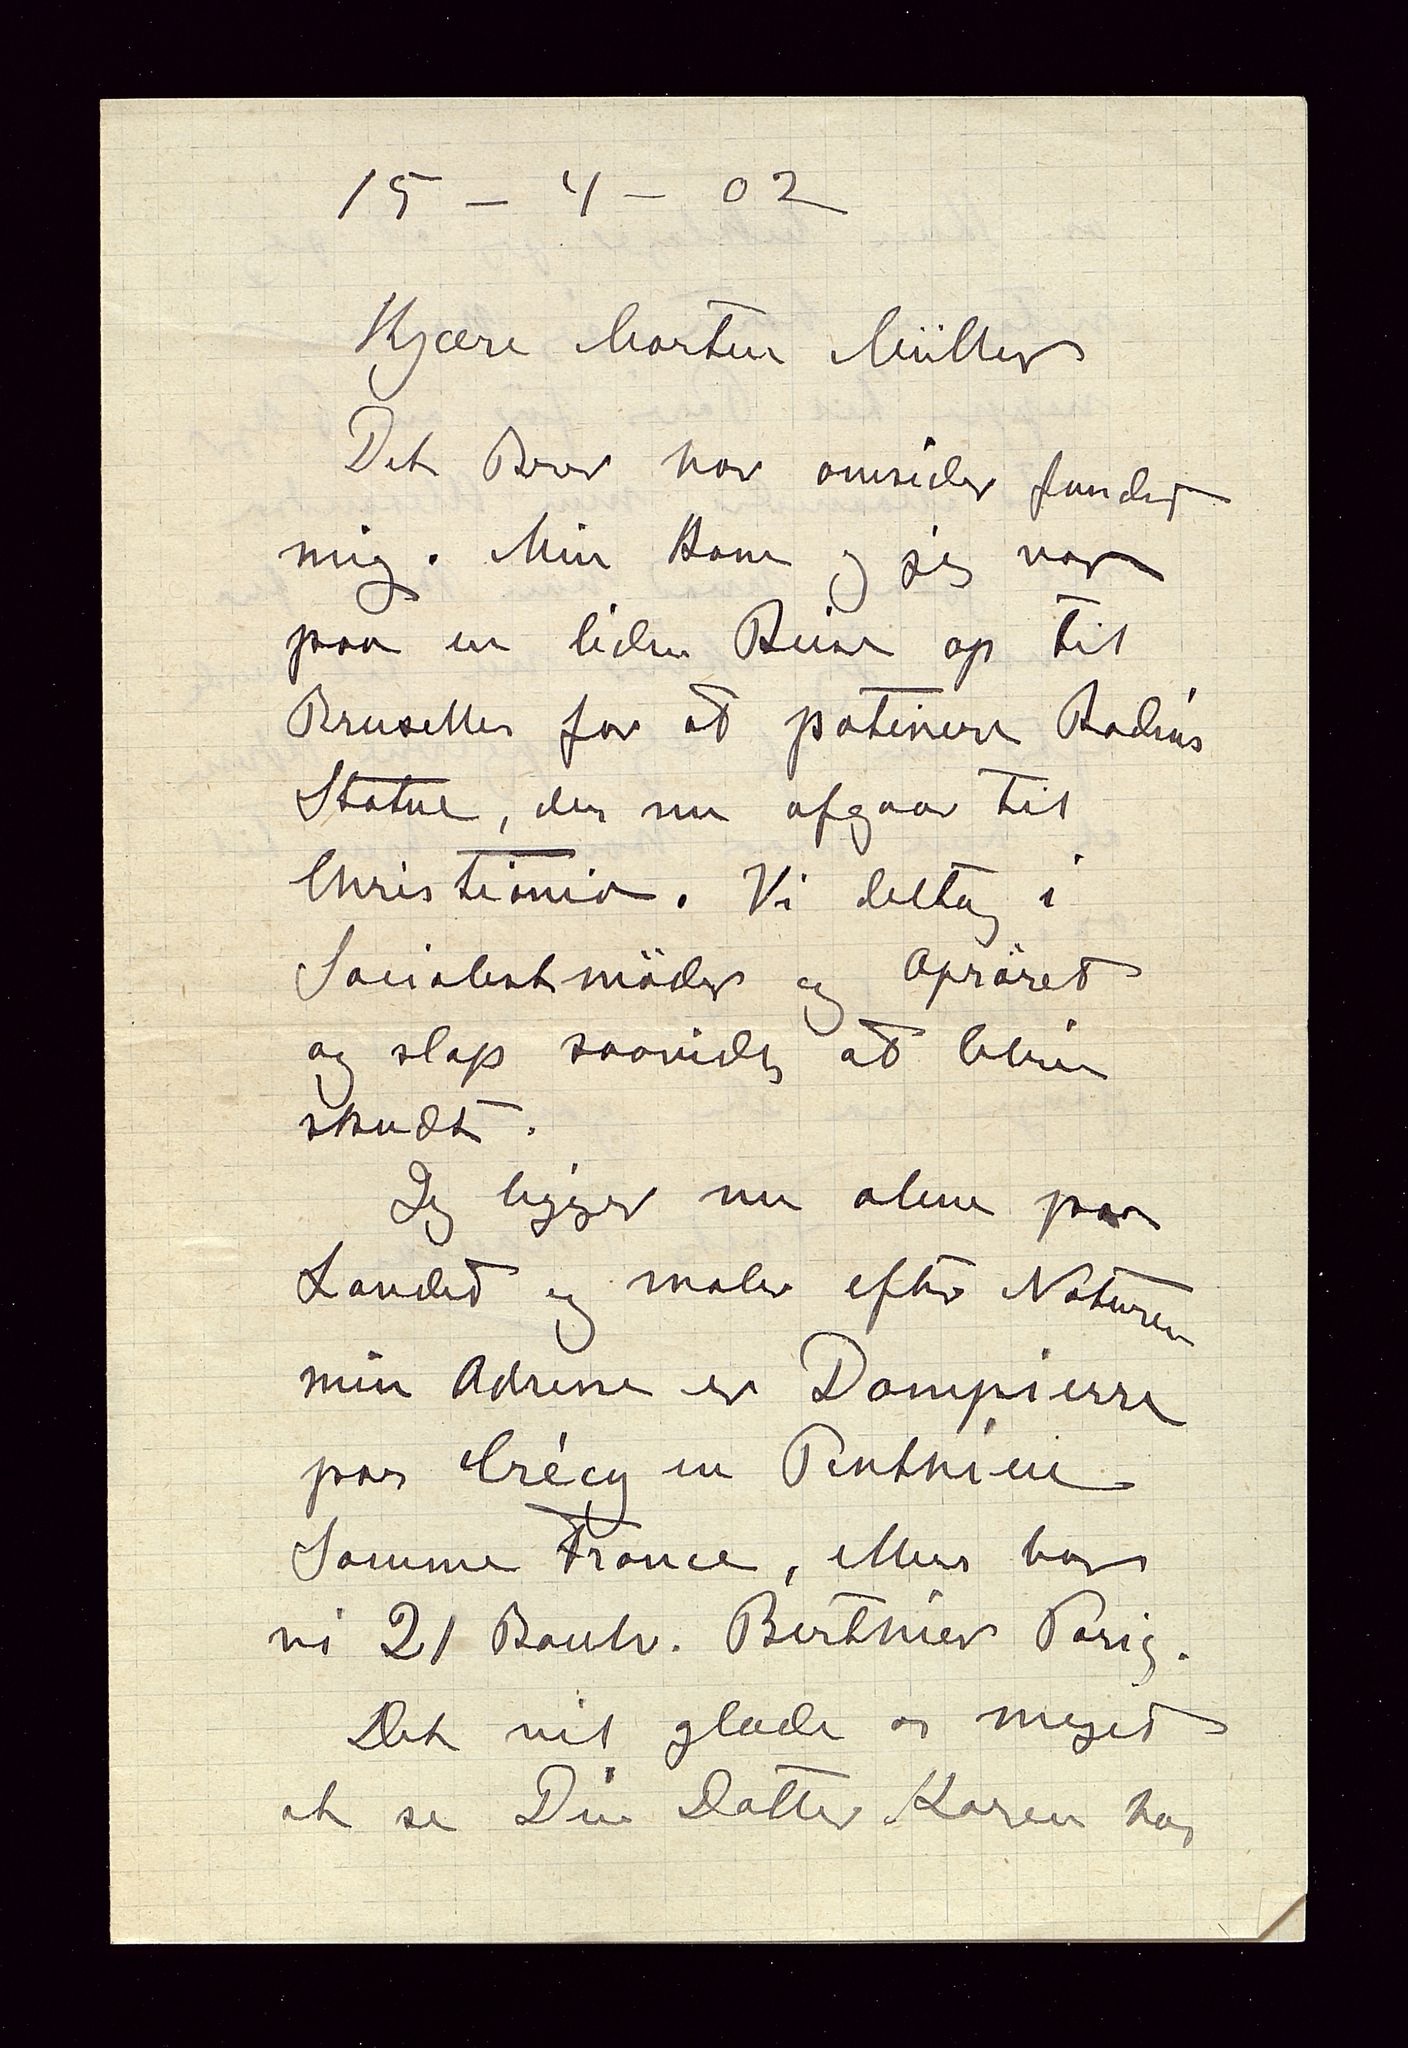 15 – 4 – 02
Kjære Morten Müller
Dit Brev har omsider fundet
mig. Min Kone og jeg var
paa en liden Reise op til
Bruxelles for at patinere Rodins
Statue, der nu afgaar til
Christiania. Vi deltog i
Socialistmöder og Opröret
og slap saavidt at blive
skudt.
Jeg ligger nu alene paa
Landet og maler efter Naturen
min Adresse er Dompierre
par Crécy en Ponthieu
Somme France, ellers bor
vi 21 Boulv. Berthier Paris.
Det vil glæde os meget
at se Din Datter Karen hos